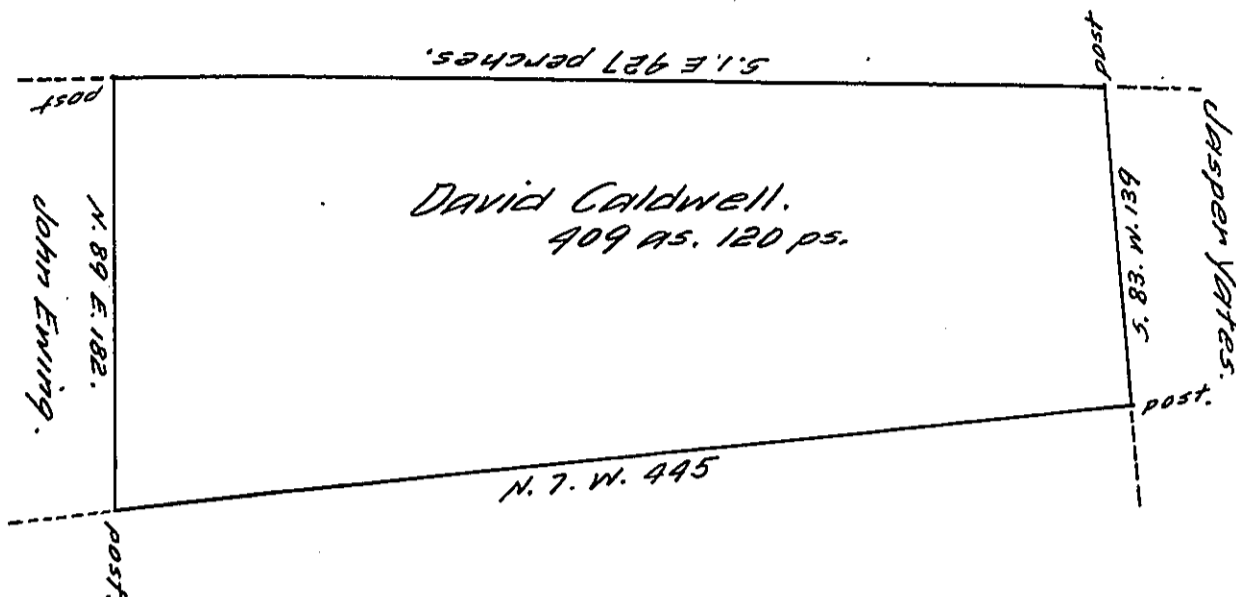 S.1.E 427 perches.
post
post
Jasper Yates.
S. 83. W. 139
David Caldwell.
409 as. 120 ps.
N. 89 E. 182.
John Ewing.
post.
N. 7. W. 445
post.